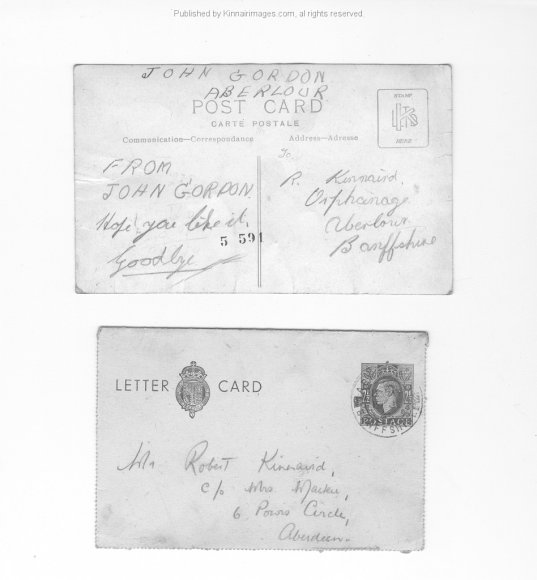 Published by Kinnairimages.com, all rights reserved
JOHN GORDON
ABERLOUR
POST CARD
CARTE POSTALE
Communication—Correspondance
Address—Adresse
STAMP
HERE
To
FROM
JOHN GORDON.
Hope you like it,
5 591
Goodbye
R. Kinnaird,
Orphanage
Aberlour
Banffshire
LETTER CARD
POSTAGE
Mr Robert Kinnaird,
c/o Mrs Mackie,
6 Powis Circle,
Aberdeen.